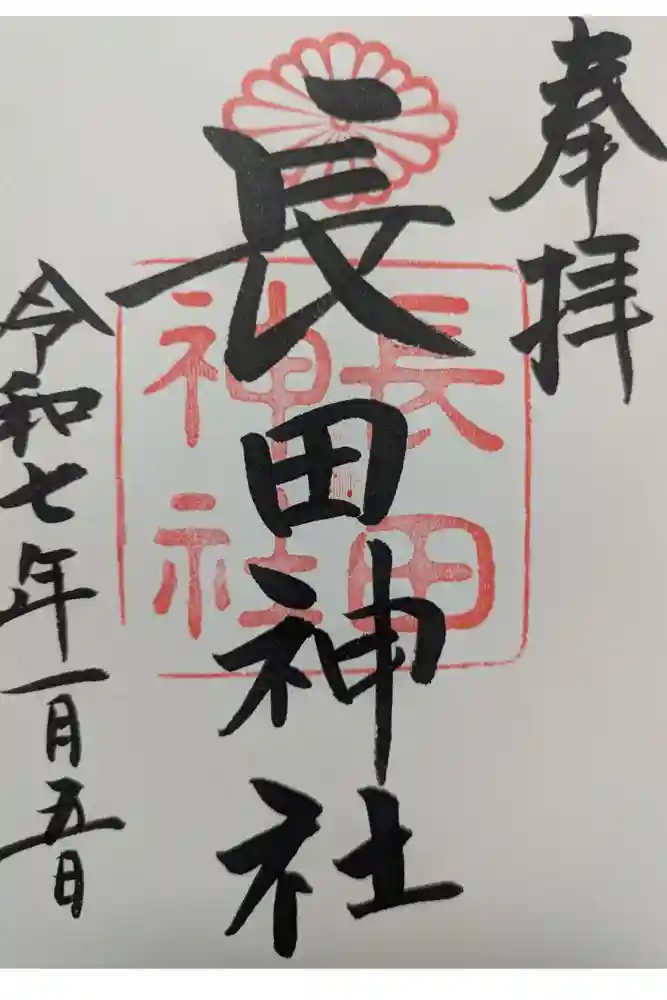 奉拝
長田神社
長田
神社
令和七年一月五日